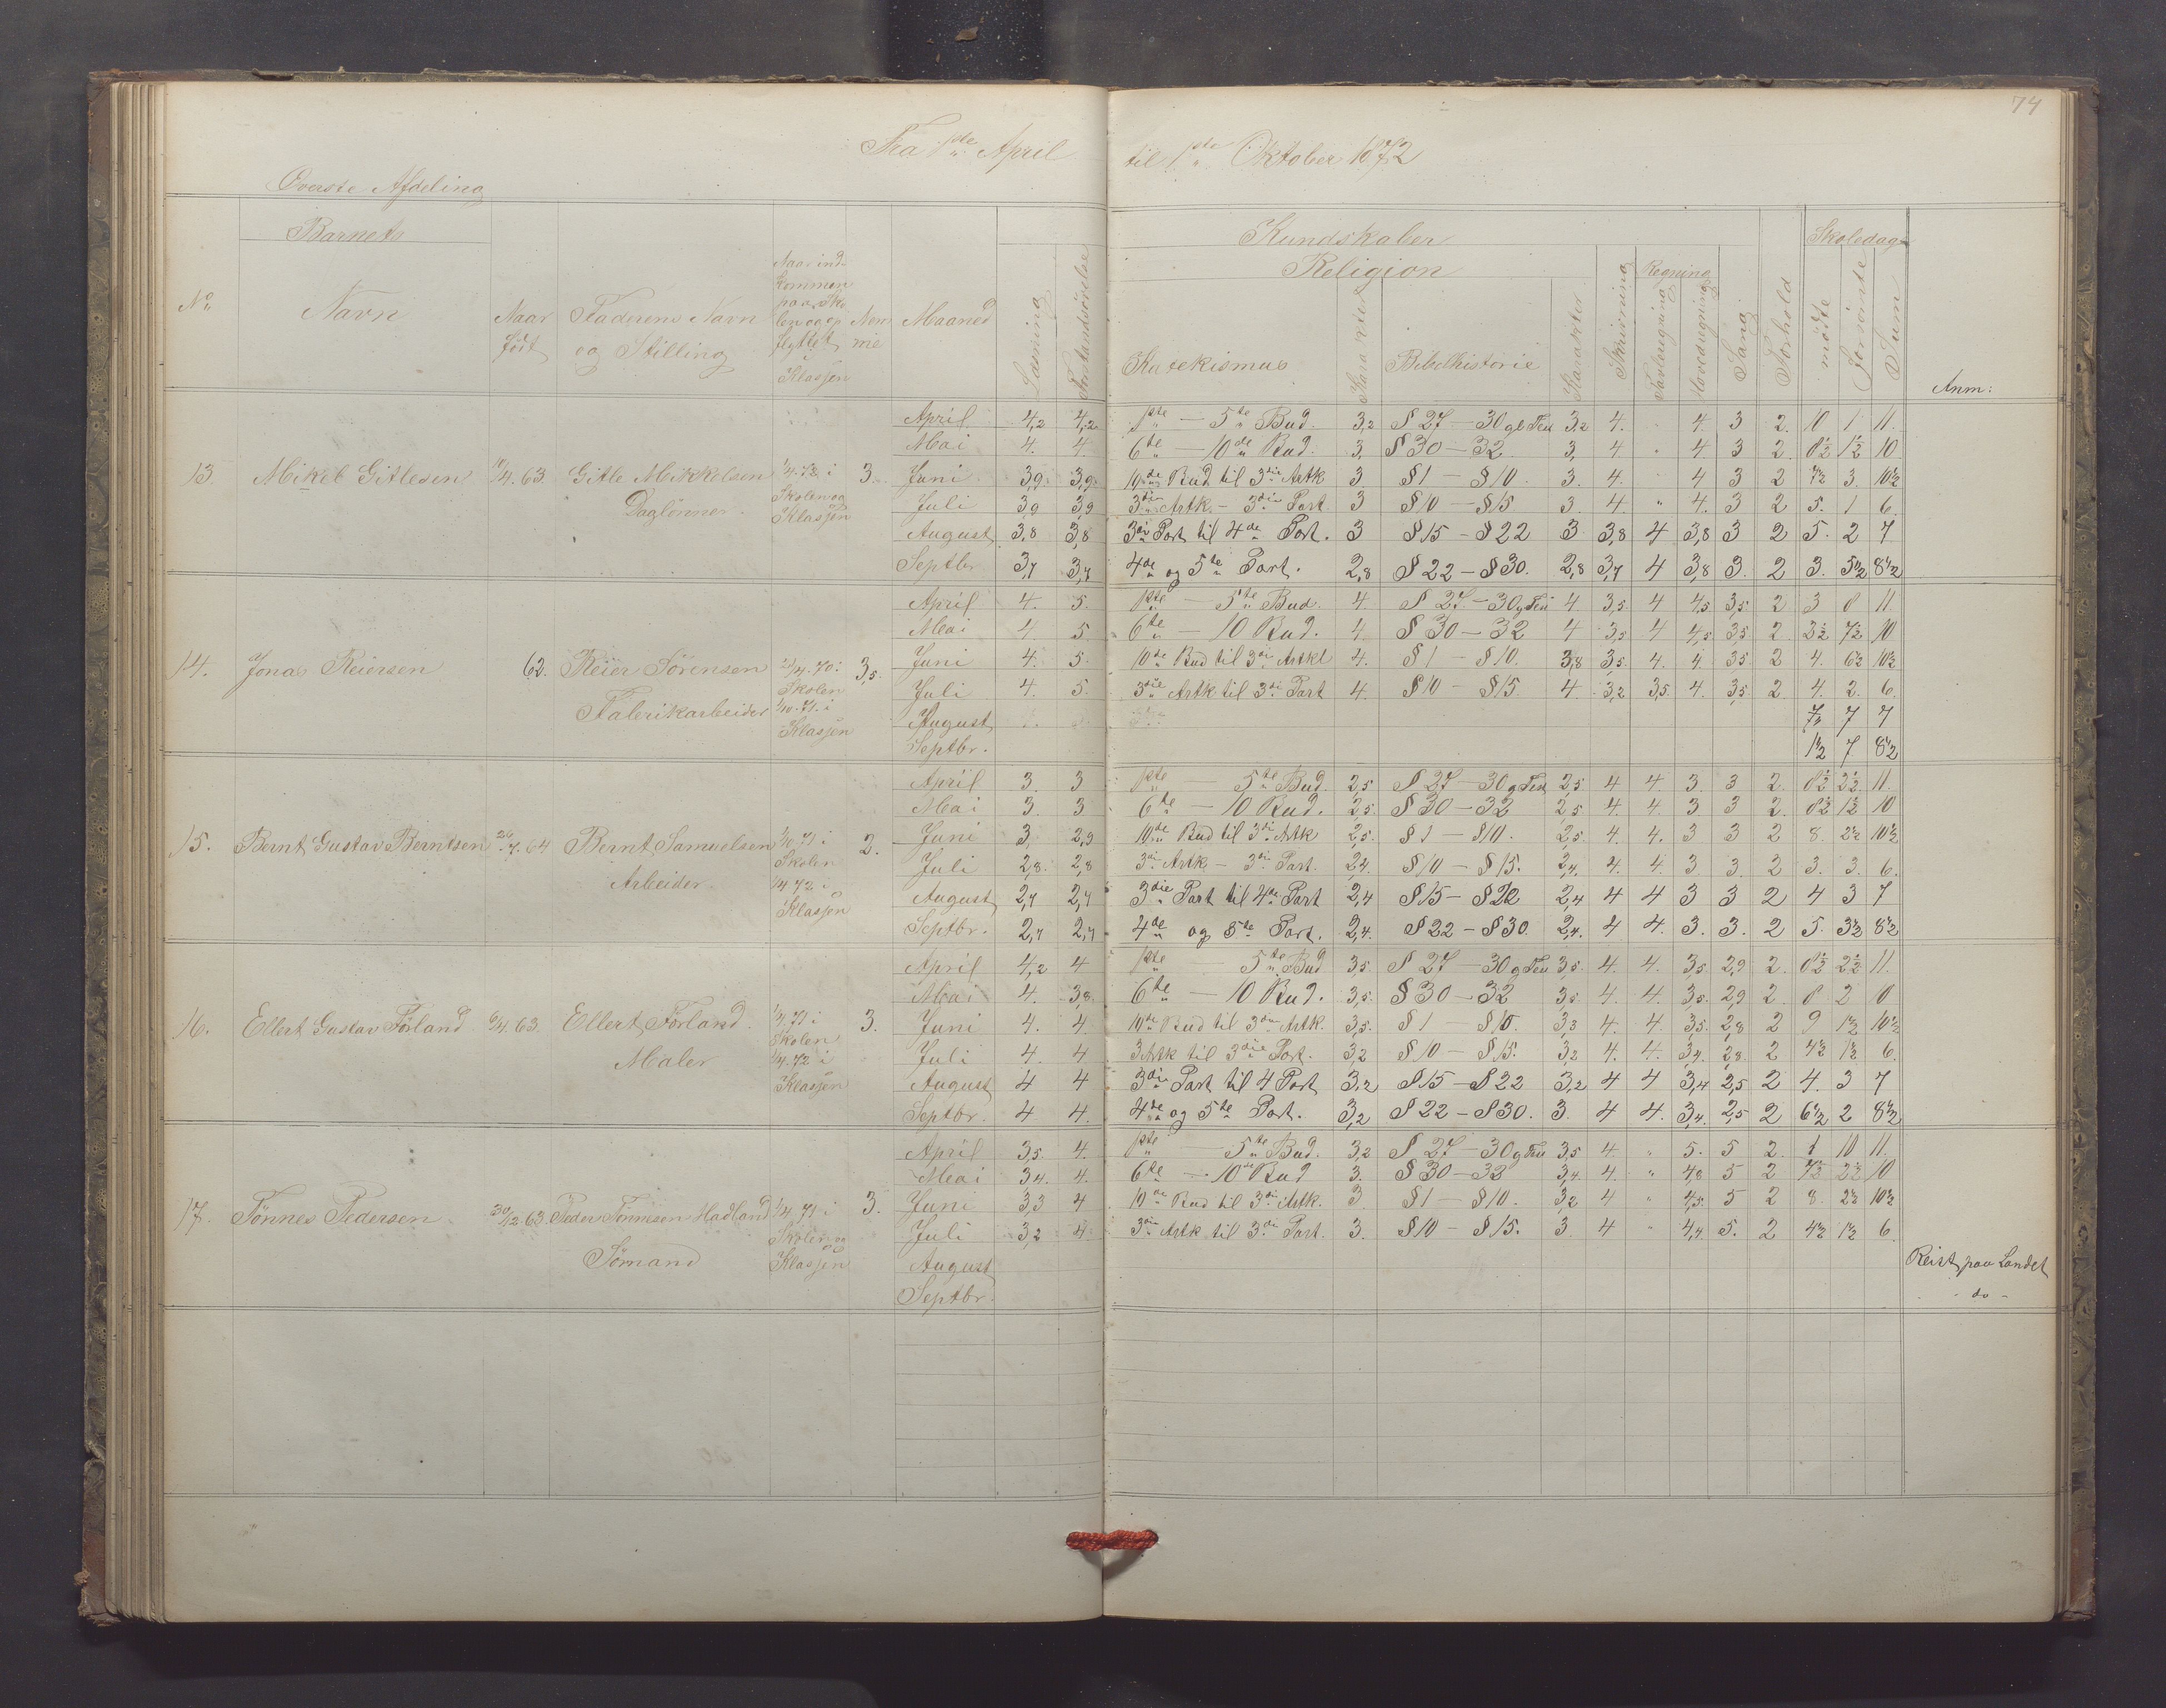 74
Fra 1ste April til 1ste Oktober 1872
Överste Afdeling
Barnets
Kundskaber
Skoledage
Religion
Regning
No
Navn
Naar født
Faderens Navn og Stilling
Naar indkommen paa Skolen og opflyttet i Klassen
Maaned
Læsning
Forstandsövelse
Katekismus
Karakter
Bibelhistorie
Karakter
Skrivning
Tavleregning
Hovedregning
Sang
Forhold
mödte
forsömte
Sum
Anm:
13. Mikel Gitlesen 63. Gitle Mikkelsen Daglönner. 1/4.72 i Skolen og Klassen 3.
April 4,2 4,2 1ste — 5te Bud. 3,2 § 27 — 30 3,2 4. 4. 3 2. 10 1 11.
Mai 4. 4. 6te — 10de Bud. 3. § 30 — 32. 3, 4 " 4 3 2. 8½ 1½ 10
Juni 3,9. 3,9. 10de Bud til 3die Artk 3. § 1 — § 10. 3. 4. 4 3 2 7½ 3. 10½
Juli 3,9 3,9 3die Artk. — 3die Part 3 § 10 — § 15 3. 4. " 4. 3 2 5. 1 6.
August 3,8 3,8 3die Part til 4de Part. 3 § 15 — § 22 3 3,8 4 3,8 3 2 5. 2 7
Septbr 3,7 3,7 4de og 5te Part. 2,8 § 22 — § 30. 2,8 3,7 4 3,8 3. 2 3. 5½ 8½
14. Jonas Reiersen 62. Reier Sörensen Fabrikarbeider 4.70 i Skolen 1/10.71. i Klassen 3,5.
April 4. 5. 1ste — 5te Bud. 4. § 27 — 30 4. 3,5. 4 4,5 3,5. 2 3 8 11
Mai 4. 5. 6te — 10 Bud. 4. § 30 — 32 4 3,5 4 4,5 3,5 2. 2½ 7½ 10
Juni 4. 5. 10de Bud til 3die Artkl 4. § 1 — § 10. 3,8 3,5. 4. 4. 3,5. 2 4. 6½ 10½
Juli 4. 5. 3die Artk til 3die Part 4. § 10 — § 15. 4. 3,2 3,5. 4. 3,5 2. 4. 2. 6.
August 7 7
Septbr. 1½ 7 8½
15. Bernt Gustav Berntsen 20/7. 64 Bernt Samuelsen Arbeider. 1/10.71 i Skolen 1/4 72 i Klassen 2.
April 3. 3 1ste 5te Bud. 2,5 § 27 — 30 2,5. 4 4. 3. 3 2. 8½ 2½ 11.
Mai 3. 3 6te — 10 Bud. 2,5. § 30 — 32 2,5. 4. 4. 3 3 2. 8½ 1½ 10
Juni 3 2,9 10de Bud til 3die Artk 2,5. § 1 — § 10. 2,5. 4. 4. 3 3 2 8. 2½ 10½
Juli 2,8. 2,8 3die Artk — 3die Part. 2,4. § 10 — § 15. 2,4. 4. 4. 3 3. 2 3. 3. 6.
August 2,7 2,7 3die Part til 4de Part 2,4 § 15 — § 22 2,4 4 4 3 3 2 4 3 7
Septbr. 2,7 2,7 4de og 5te Part. 2,4. § 22 — § 30. 2,4. 4 4. 3. 3. 2 5. 3½ 8½
16. Ellert Gustav Førland 6/4.63. Ellert Førland. Maler 1/4.71 i Skolen 1/4.72 i Klassen 3.
April 4,2 4 1ste — 5te Bud 3,5. § 27 — 30 3,5. 4. 4. 3,5 2,9 2. 8½ 2½ 11.
Mai 4. 3,8. 6te — 10 Bud. 3,5. § 30 — 32 3,5 4. 4. 3,5. 2,9 2. 8 2 10
Juni 4. 4. 10de Bud til 3die Artk. 3,5. § 1 — § 10. 3,3 4. 4. 3,5. 2,8 2 9 1½ 10½
Juli 4. 4 3 Artk til 3die Part. 3,2 § 10 — § 15. 3,2 4. 4. 3,4. 2,8. 2 4½ 1½ 6.
August 4 4 3die Part til 4 Part 3,2 § 15 — § 22 3,2 4 4 3,4 2,5 2 4. 3 7
Septbr. 4 4. 4de og 5te Part. 3,2 § 22 — § 30. 3. 4 4. 3,4. 2,5 2 6½ 2 8½
17. Tönnes Pedersen. 30/12 63. Peder Tönnesen Hadland Sömand 1/4.71 i Skolen og Klassen 3.
April 3,5. 4. 1ste — 5te Bud. 3,2 § 27 — 30 3,5 4. " 5. 5 2. 1 10 11.
Mai 3,4. 4. 6te — 10de Bud 3. § 30 — 32 3,4. 4. " 4,8 5 2 7½ 2½ 10
Juni 3,3 4 10de Bud til 3die Artk. 3 § 1 — § 10. 3,2 4 " 4,5. 5 2 8. 2½ 10½
Juli 3,2 4. 3die Artk til 3die Part. 3. § 10 — § 15. 3 4 " 4,4 5. 2 4½ 1½ 6.
August Reist paa Landet
Septbr. do